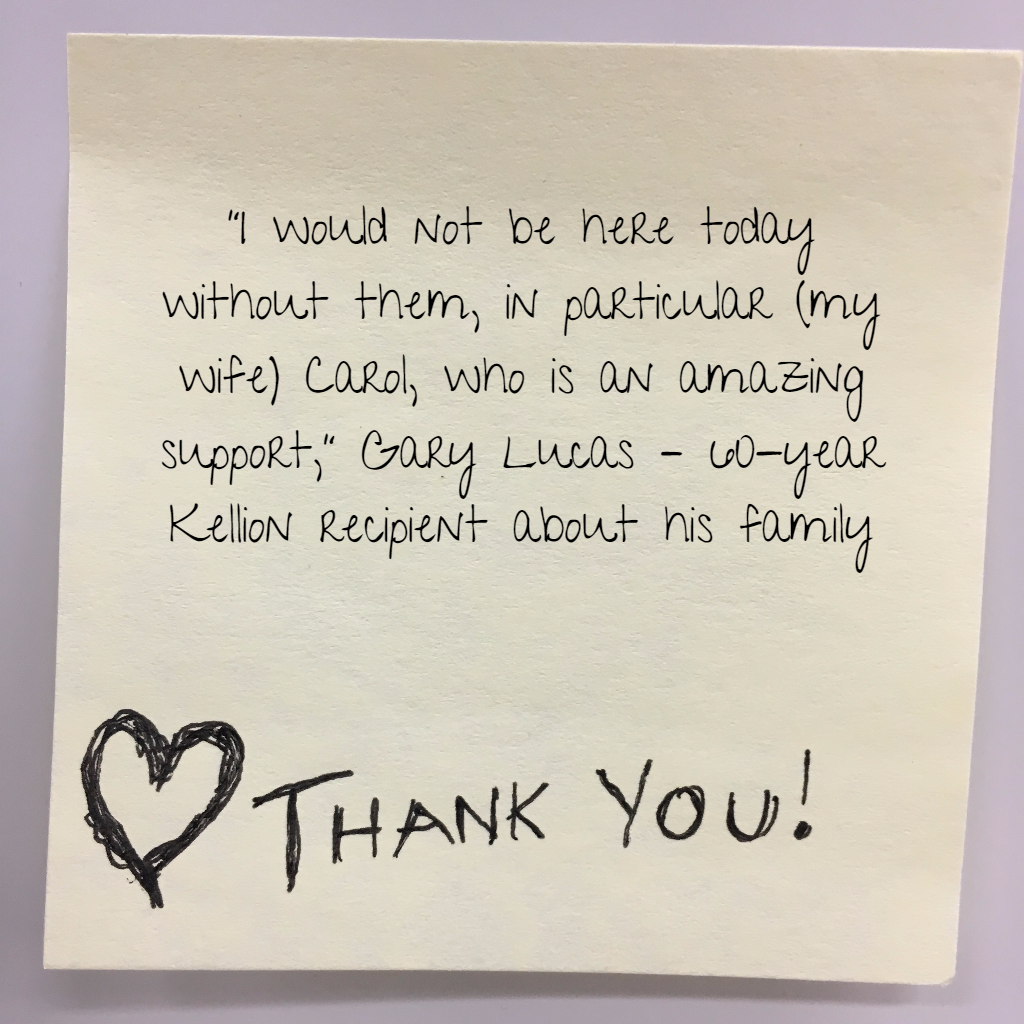 "I would not be here today
without them, in particular (my
wife) Carol, who is an amazing
support," Gary Lucas - 60-year
Kellion recipient about his family
THANK YOU!